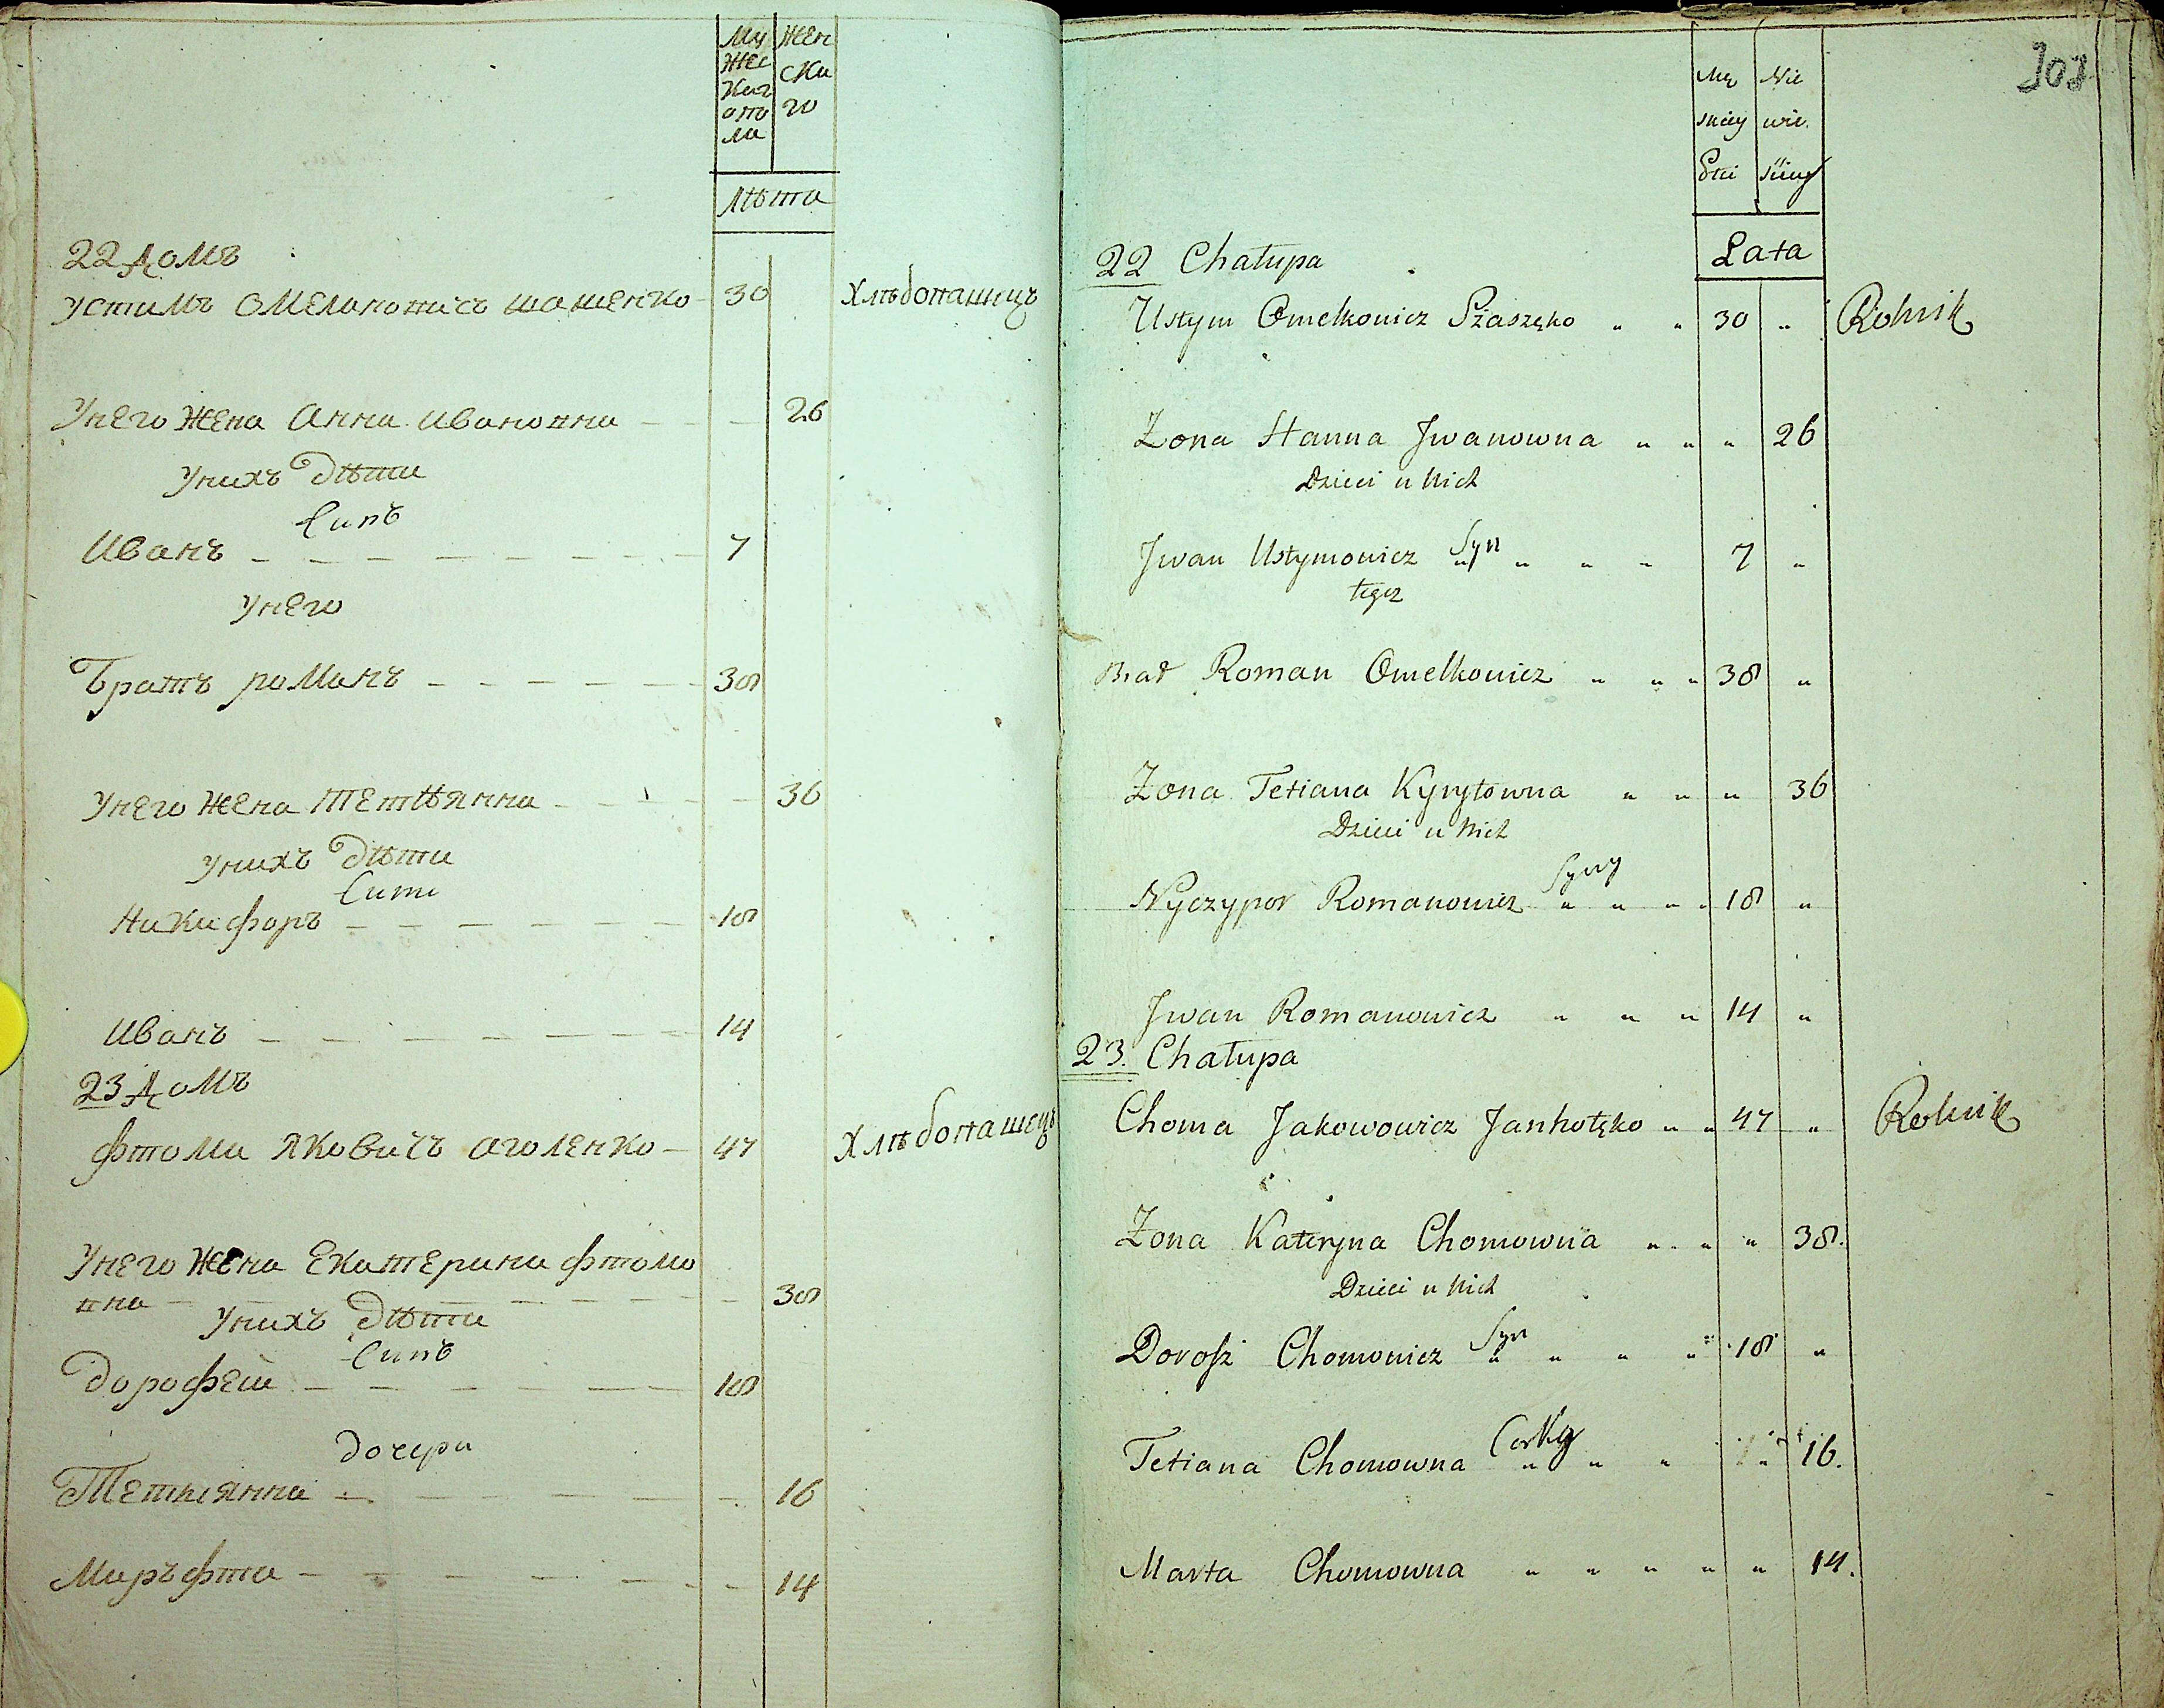 Му жес каг опо ла
Жен ска го
Лѣта
22 домъ
устимъ Омеляновичъ шашенко 30 Хлѣбопашецъ
Унего жена Анна Ивановна 26
Унихъ дѣти
Синъ
Иванъ 7
Унего
Братъ романъ 38
Унего жена Тетіянна 36
Унихъ дѣти
Сини
Никифоръ 18
Иванъ 14
23 домъ
фтома Яковичъ аголенко 47 Хлѣбопашецъ
Унего жена Екатерина фтомо
вна 38
Унихъ дѣти
Синъ
дорофей 18
дочери
Тетіянна 16
Маръфта 14
308
Mę skiey Płci
Nie wie ściey
Lata
22 Chałupa
Ustym Omelkowicz Szaszęko " " 30 " Rolnik
Zona Hanna Jwanowna " " " 26
Dzieci u Nich
Jwan Ustymowicz Syn " " " " 7 "
tegoż
Brat Roman Omelkowicz " " " 38 "
Zona Tetiana Kyryłowna " " " 36
Dzieci u Nich
Syny
Nyczypor Romanowicz " " " " 18 "
Jwan Romanowicz " " " 14 "
23. Chałupa
Choma Jakowowicz Janhołęko " " 47 " Rolnik
Zona Kateryna Chomowna " " " 38.
Dzieci u Nich
Dorosz Chomowicz Syn " " " " 18 "
Tetiana Chomowna Corky " " " " 16.
Marta Chomowna " " " " " 14.